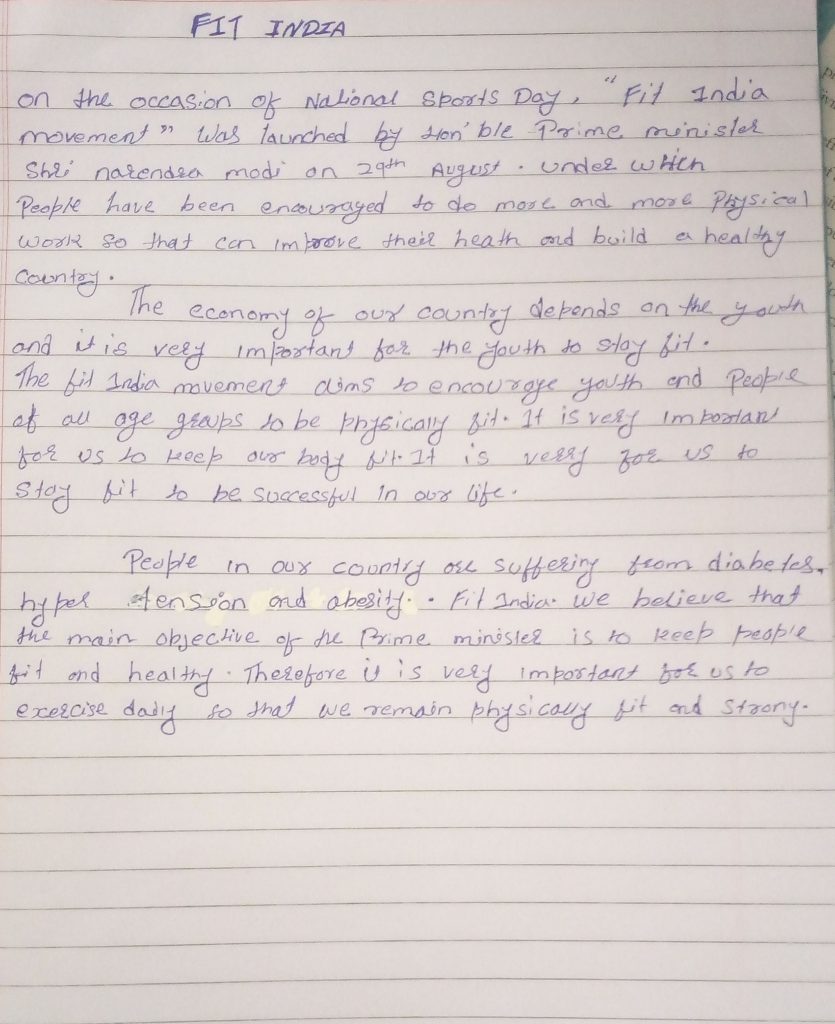 FIT INDIA
on the occasion of National Sports Day, "Fit India
movement" Was launched by Hon'ble Prime minister
Shri narendra modi on 29th August. under which
People have been encouraged to do more and more Physical
work so that can improve their heath and build a healthy
Country.
The economy of our country depends on the youth
and it is very important for the youth to stay fit.
The fit India movement aims to encourage youth and People
of all age groups to be physicaly fit. It is very important
for us to keep our body fit. It is verry for us to
Stay fit to be successful in our life.
People in our country are suffering from diabetes,
hyper tension and abesity. . Fit India. We believe that
the main objective of the Prime minister is to keep people
fit and healthy. Therefore it is very important for us to
exercise daily so that we remain physicaly fit and strong.